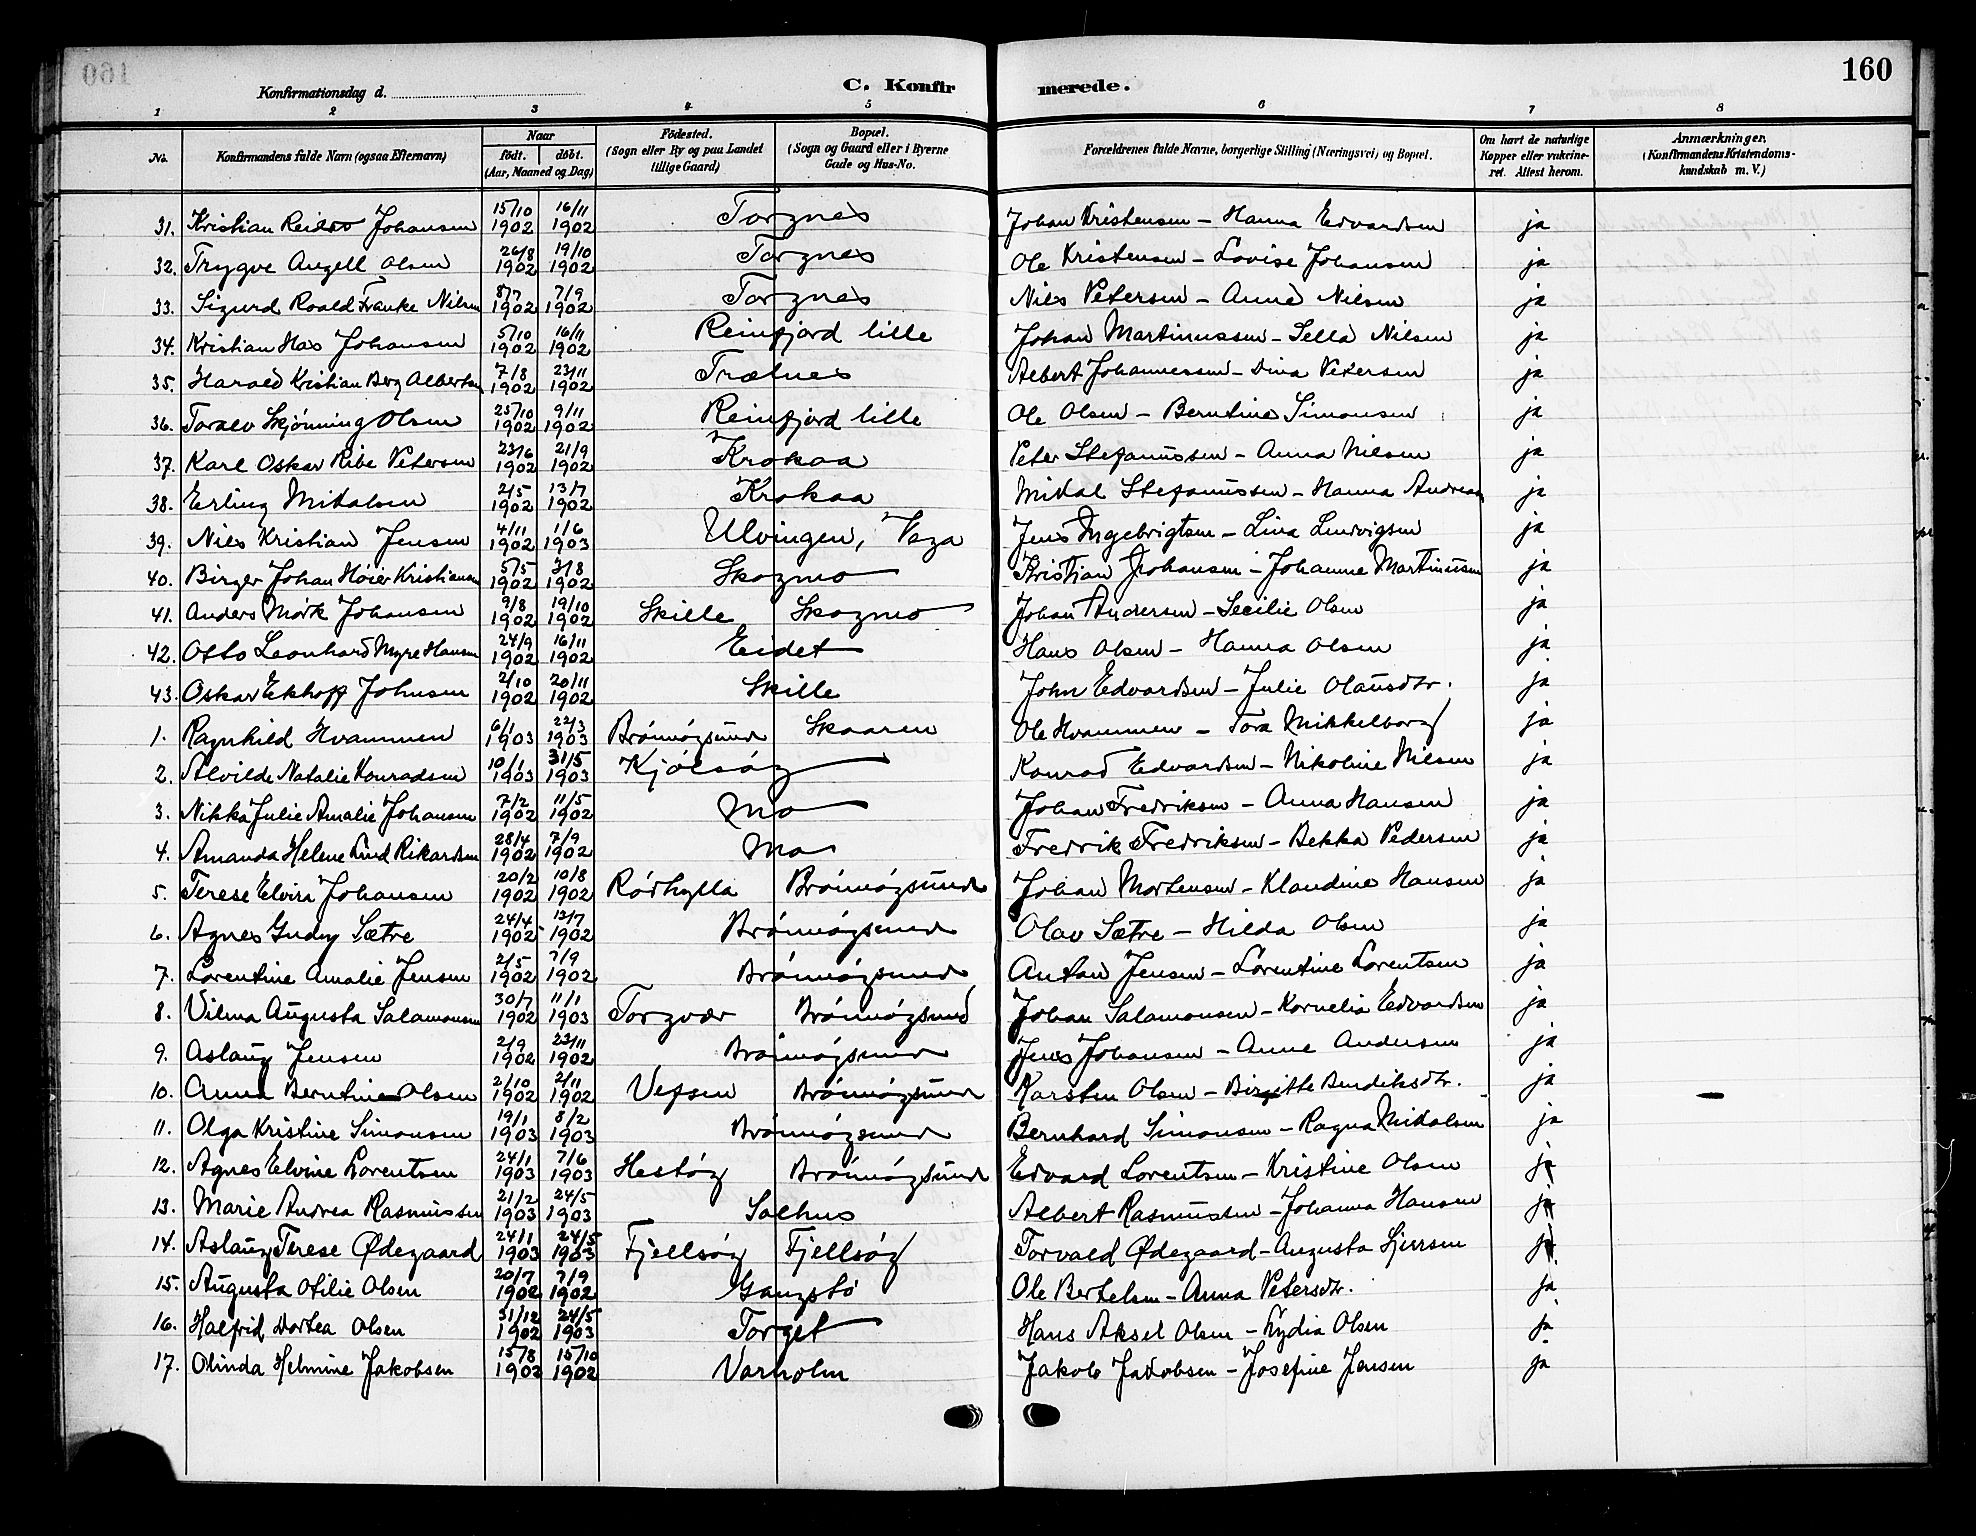 160
Konfirmationsdag d.
C. Konfirmerede.
1 2 3 4 5 6 7 8
No. Konfirmandens fulde Navn (ogsaa Efternavn) Naar født. døbt. (Aar, Maaned og Dag) Fødested. (Sogn eller By og paa Landet tillige Gaard) Bopæl. (Sogn og Gaard eller i Byerne Gade og Hus-No. Forældrenes fulde Navne, borgerlige Stilling (Næringsvei) og Bopæl. Om havt de naturlige Kopper eller vakcineret. Attest herom. Anmærkninger. (Konfirmandens Kristendomskundskab m. V.)
31. Kristian Johansen 15/10 1902 16/11 1902 Torgnes Johan Kristensen - Hanna Edvardsen ja
32. Trygve Angell Olsen 26/8 1902 19/10 1902 Torgnes Ole Kristensen - Lovise Johansen ja
33. Sigurd Roald Franke Nilsen 8/7 1902 7/9 1902 Torgnes Nils Petersen - Anne Nilsen ja
34. Kristian Hax Johansen 5/10 1902 16/11 1902 Reinfjord lille Johan Martinussen - Sella Nilsen ja
35. Harald Kristian Berg Albertsen 7/8 1902 23/11 1902 Trælnes Albert Johannessen - Dina Petersen ja
36. Toralv Skjønning Olsen 25/10 1902 9/11 1902 Reinfjord lille Ole Olsen - Berntine Simonsen ja
37. Karl Oskar Ribe Petersen 23/6 1902 21/9 1902 Krokaa Peter Stefanussen - Anna Nilsen ja
38. Erling Mikalsen 2/5 1902 13/7 1902 Krokaa Mikal Stefanussen - Hanna Andreas ja
39. Nils Kristian Jensen 4/11 1902 1/6 1903 Ulvingen, Vega Jens Ingebrigtsen - Lina Ludvigsen ja
40. Birger Johan Høier Kristiansen 5/5 1902 3/8 1902 Skogmo Kristian Johansen - Johanne Martinussen ja
41. Anders Mørk Johansen 9/8 1902 19/10 1902 Skille Skogmo Johan Andersen - Secilie Olsen ja
42. Otto Leonhard Myre Hansen 24/9 1902 16/11 1902 Eidet Hans Olsen - Hanna Olsen ja
43. Oskar Ekhoff Johnsen 2/10 1902 20/11 1902 Skille John Edvardsen - Julie Olausdtr. ja
1. Ragnhild Hvammen 6/1 1903 22/3 1903 Brønnøgsund Skaaren Ole Hvammen - Tora Mikkelborg ja
2. Alvilde Natalie Konradsen 10/1 1903 31/5 1903 Kjølsøg Konrad Edvardsen - Nikoline Nilsen ja
3. Nikka Julie Amalie Johansen 7/2 1902 11/5 1902 Mo Johan Fredriksen - Anna Hansen ja
4. Amanda Helene Lund Rikardsen 28/4 1902 7/9 1902 Mo Fredrik Fredriksen - Bekka Pedersen ja
5. Terese Elvira Johansen 20/2 1902 10/8 1902 Rødhylla Brønnøgsund Johan Mortensen - Klaudine Hansen ja
6. Agnes Gudny Sætre 24/4 1902 13/7 1902 Brønnøgsund Olav Sætre - Hilda Olsen ja
7. Lorentine Amalie Jensen 2/5 1902 7/9 1902 Brønnøgsund Anton Jensen - Lorentine Lorentsen ja
8. Vilma Augusta Salamonsen 30/7 1902 11/1 1903 Torgvær Brønnøgsund Johan Salamonsen - Kornelia Edvardsen ja
9. Aslaug Jensen 2/9 1902 23/11 1902 Brønnøgsund Jens Johansen - Anne Andersen ja
10. Anna Berntine Olsen 2/10 1902 2/11 1902 Vefsen Brønnøgsund Karsten Olsen - Birgitte Bendiksdtr. ja
11. Olga Kristine Simonsen 19/1 1903 8/2 1903 Brønnøgsund Bernhard Simonsen - Ragna Mikalsen ja
12. Agnes Elvine Lorentsen 24/1 1903 7/6 1903 Hestøg Brønnøgsund Edvard Lorentsen - Kristine Olsen ja
13. Marie Andrea Rasmussen 21/2 1903 24/5 1903 Salhus Albert Rasmussen - Johanna Hansen ja
14. Aslaug Terese Ødegaard 24/1 1903 24/5 1903 Fjellsøg Fjellsøg Torvald Ødegaard - Augusta Sjursen ja
15. Augusta Otilie Olsen 20/7 1902 7/9 1902 Gangstø Ole Bertelsen - Anna Petersdtr. ja
16. Halfrid Dortea Olsen 31/12 1902 24/5 1903 Torget Hans Aksel Olsen - Lydia Olsen ja
17. Olinda Helmine Jakobsen 15/8 1903 15/10 1902 Varholm Jakob Jakobsen - Josefine Jensen ja